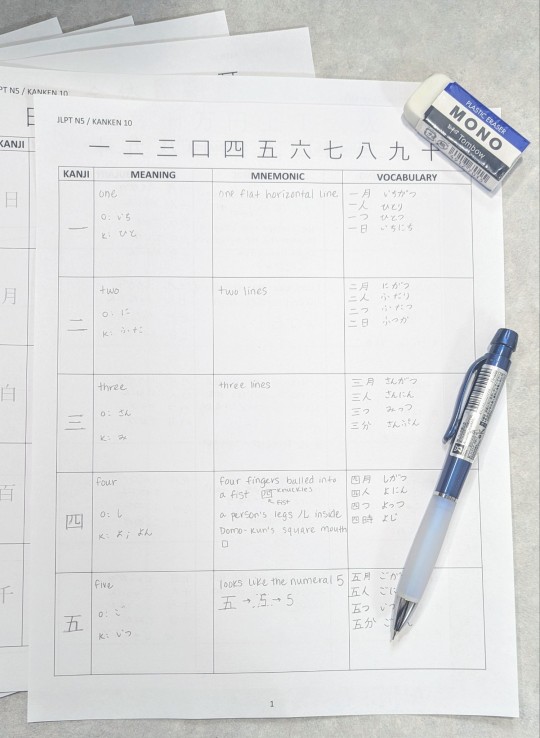 PT N5 / KANKEN 10
KANJI
日
月
白
百
千
JLPT N5 / KANKEN 10
一 二 三 口 四 五 六 七 八 九 十
KANJI MEANING MNEMONIC VOCABULARY
一
one
O: いち
K: ひと
one flat horizontal line
一月 いちがつ
一人 ひとり
一つ ひとつ
一日 いちにち
二
two
O: に
K: ふた
two lines
二月 にがつ
二人 ふたり
二つ ふたつ
二日 ふつか
三
three
O: さん
K: み
three lines
三月 さんがつ
三人 さんにん
三つ みっつ
三分 さんぷん
四
four
O: し
K: よ; よん
four fingers balled into
a fist 四 knuckles
fist
a person's legs /L inside
Domo-kun's square mouth
口
四月 しがつ
四人 よにん
四つ よっつ
四時 よじ
五
five
O: ご
K: いつ
looks like the numeral 5
五 → 5 → 5
五月 ごが
五人 ごに
五つ いつ
五分 ご
1
PLASTIC ERASER
MONO
Tombow